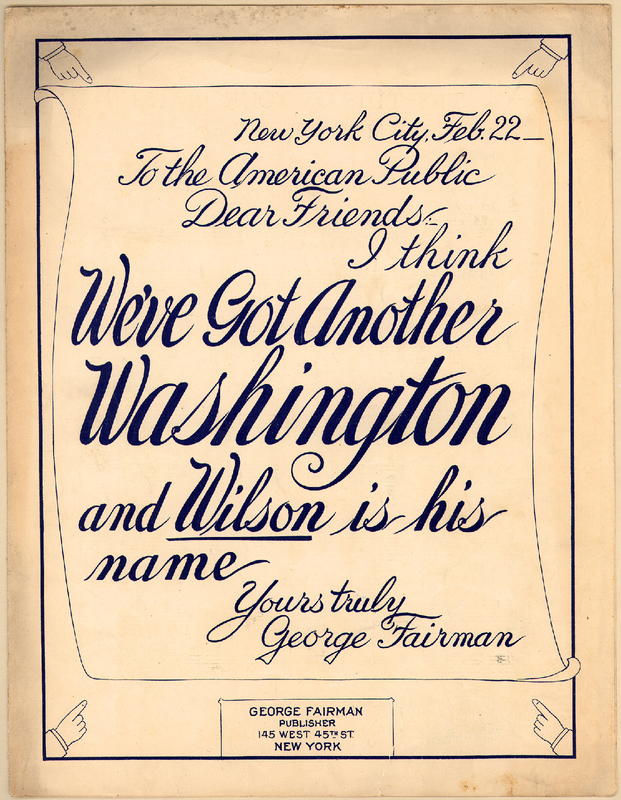 New York City, Feb. 22—
To the American Public
Dear Friends:—
I think
We've Got Another
Washington
and Wilson is his
name
Yours truly
George Fairman
GEORGE FAIRMAN
PUBLISHER
145 WEST 45TH ST.
NEW YORK